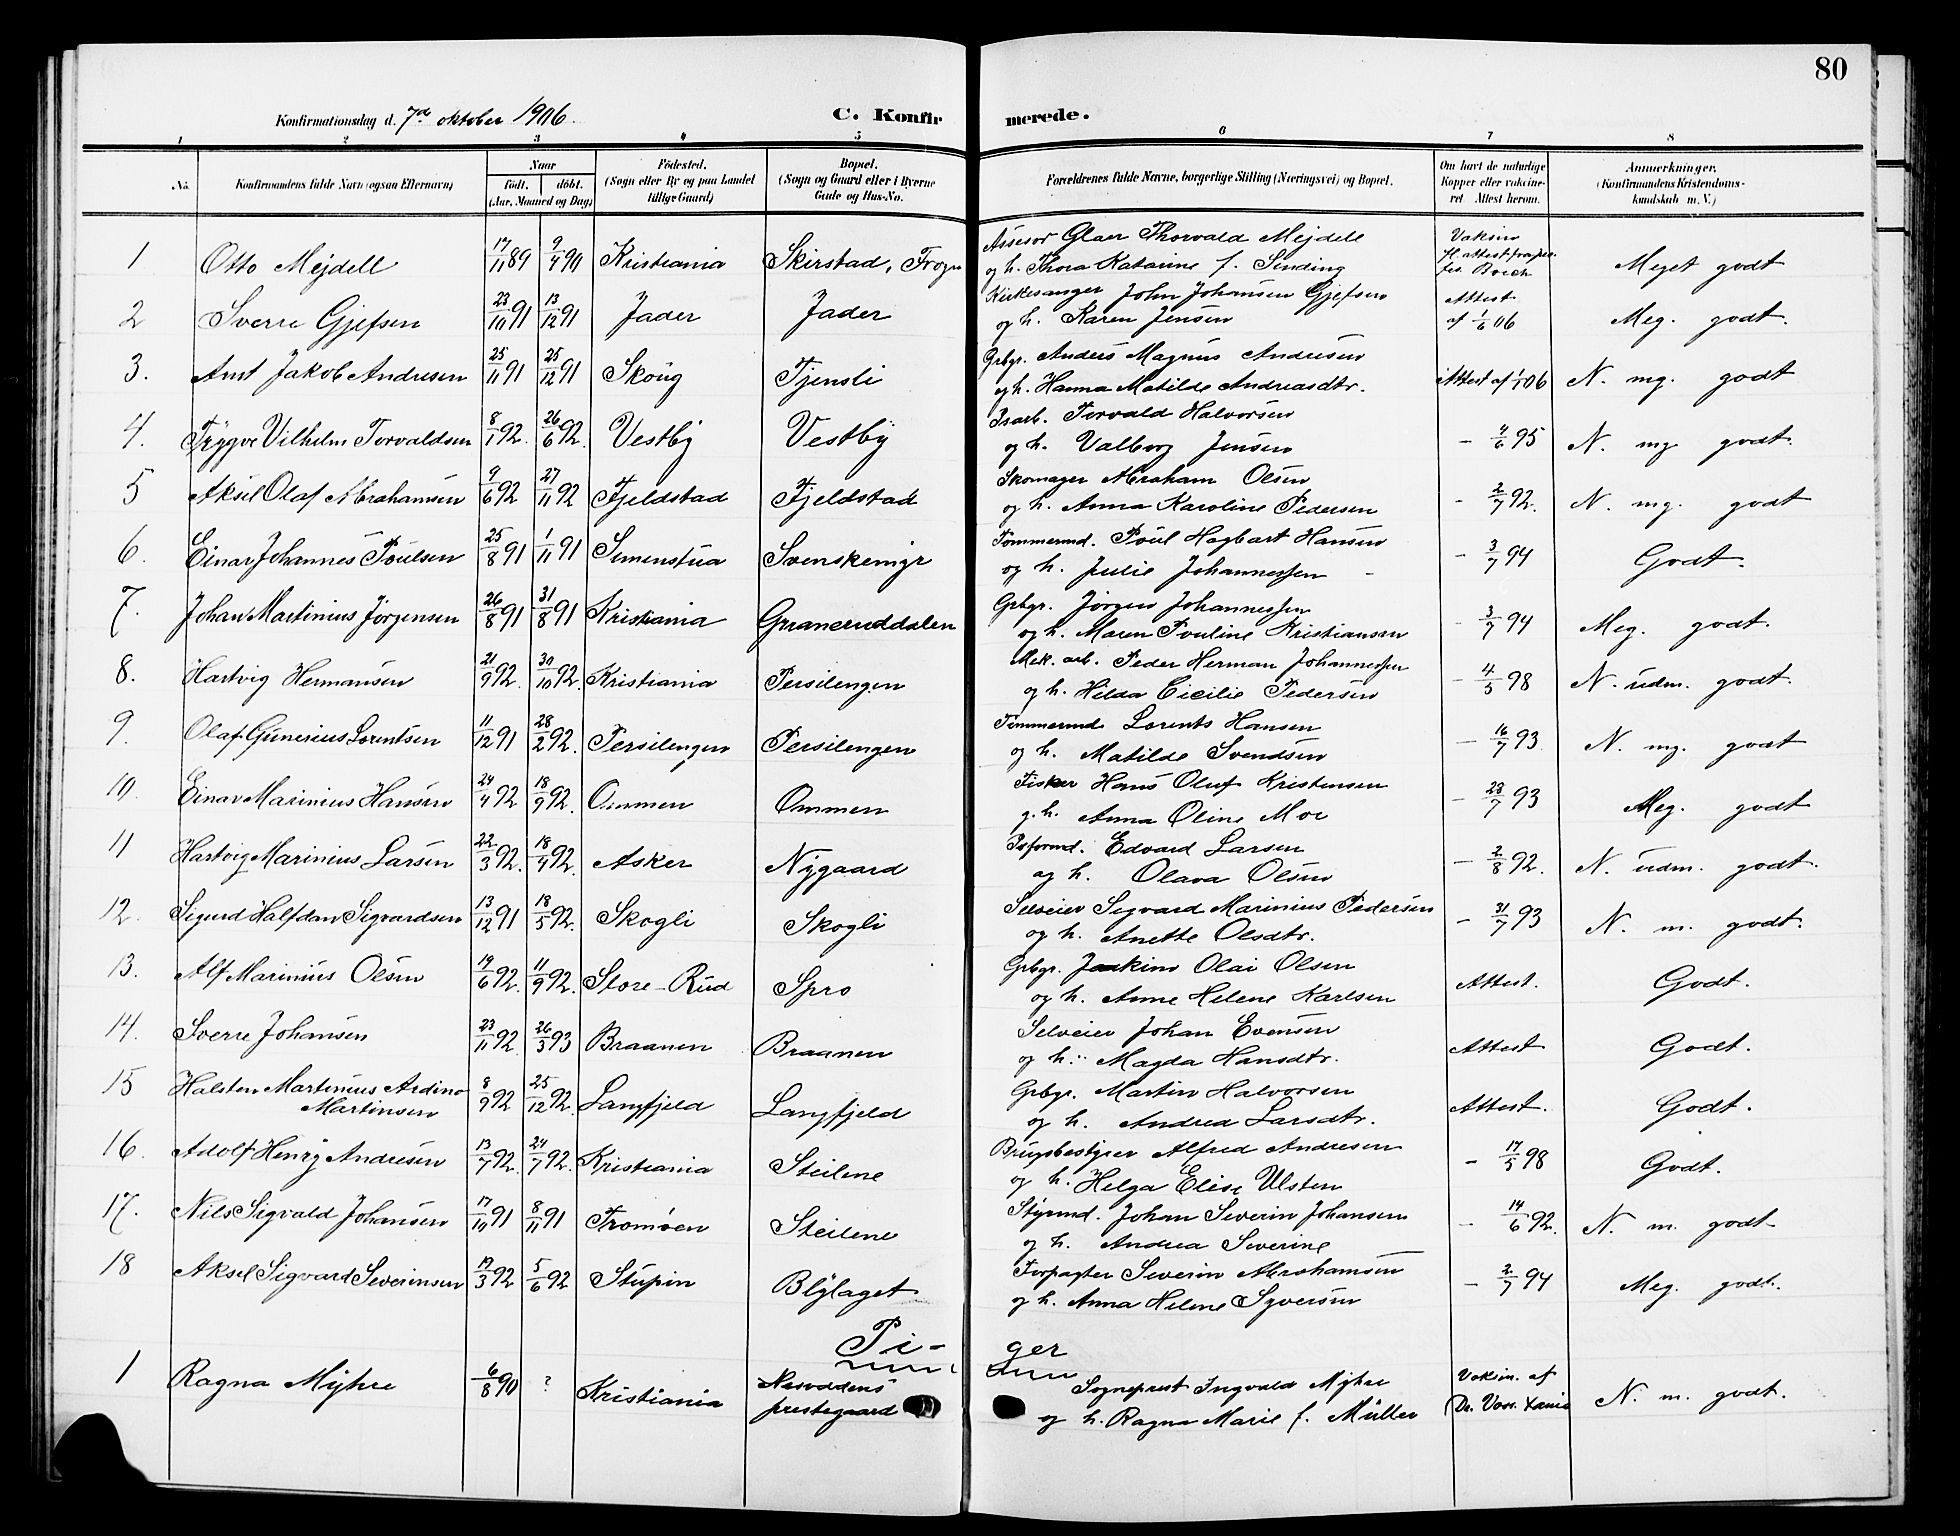 80
Konfirmationsdag d. 7de oktober 1906. C. Konfirmerede.
1 2 3 4 5 6 7 8
No. Konfirmandens fulde Navn (ogsaa Efternavn) Naar født. døbt. (Aar, Maaned og Dag) Fødested. (Sogn eller By og paa Landet tillige Gaard) Bopæl. (Sogn og Gaard eller i Byerne Gade og Hus-No. Forældrenes fulde Navne, borgerlige Stilling (Næringsvei) og Bopæl. Om havt de naturlige Kopper eller vaccineret. Attest herom. Anmerkninger. (Konfirmandens Kristendomskundskab m. V.)
1 Otto Mejdell 17/11 89 9/4 90 Kristiania Skirstad, Frogn Assesor Glaer Thorvald Mejdell Vaksin
og h. Thora Katarine f. Sinding Meget godt
2 Sverre Gjefsen 23/10 91 13/12 91 Jader Jader Kirkesanger John Johansen Gjefsen Attest
og h. Karen Jensen af 1/6 06 Meg. godt.
3. Arnt Jakob Andresen 25/11 91 25/12 91 Skoug Tjensli Grbgr. Anders Magnus Andresen
og h. Hanna Matilde Andreasdtr. N. mg. godt
4. Trygve Vilhelm Torvaldsen 8/1 92. 26/6 92. Vestby Vestby Isarb. Torvald Halvorsen
og h. Valborg Jensen - 4/6 95 N. mg godt.
5 Aksel Olaf Abrahamsen 9/6 92 27/11 92 Fjeldstad Fjeldstad Skomager Abraham Olsen
og h. Anna Karoline Pedersen - 2/7 92. N. mg. godt
6. Einar Johannes Poulsen 25/8 91 1/11 91 Simenstua Svenskemyr Tømmermd. Poul Hagbart Hansen
og h. Julie Johannessen - 3/7 94 Godt.
7. Johan Martinius Jörgensen 26/8 91 31/8 91 Kristiania Graneruddalen Grbgr. Jörgen Johannessen
og h. Maren Pouline Kristiansen - 3/7 94 Meg. godt.
8. Hartvig Hermansen 21/9 92. 30/10 92. Kristiania Persilengen Mek. arb. Peder Herman Johannessen
og h. Hilda Cicilie Pedersen - 4/5 98 N. udm. godt.
9. Olaf Gunerius Lorentsen 11/12 91 28/2 92. Persilengen Persilengen Tømmermd. Lorents Hansen
og h. Matilde Svendsen - 16/7 93 N. mg. godt
10. Einar Marinius Hansen 24/4 92 18/9 92. Ommen Ommen Fisker Hans Oluf Kristensen
g. h. Anna Oline Moe - 23/7 93 Meg. godt
11 Hartvig Marinius Larsen 22/3 92. 18/4 92. Asker Nygaard Isformd. Edvard Larsen
og h. Olava Olsen - 2/8 92. N. udm. godt.
12. Sigurd Halfdan Sigvardsen 13/12 91 18/5 92. Skogli Skogli Selveier Segvard Marinius Pedersen
og h. Anette Olsdtr. - 31/7 93 N. m. godt.
13. Alf Marinius Olsen 19/6 92. 11/9 92. Store-Rud Spro Grbgr. Joakim Olai Olsen
og h. Anne Helene Karlsen Attest. Godt.
14. Sverre Johansen 23/11 92. 26/3 93 Braanen Braanen Selveier Johan Evensen
og h. Magda Hansdtr. Attest Godt.
15 Halsten Martinius Ardino 8/9 92 25/12 92. Langfjeld Langfjeld Grbgr. Martin Halvorsen
Martinsen og h. Andrea Larsdtr. Attest. Godt.
16. Adolf Henry Andresen 13/7 92. 24/7 92. Kristiania Steilene Brugsbestyrer Alfred Andresen
og h. Helga Elise Ulsten - 17/5 98 Godt.
17. Nils Sigvald Johansen 17/10 91 8/11 91 Tromöen Steilene Styrmd. Johan Severin Johansen
og h. Andrea Severine - 14/6 92. N. m. godt
18 Aksel Sigvard Severinsen 17/3 92 5/6 92 Stupin Blylaget Forpagter Severin Abrahamsen
og h. Anna Helene Syversen - 2/7 94 Meg. godt.
Pi-ger
1 Ragna Myhre 6/8 90 ? Kristiania Nesoddens Sogneprest Ingvald Myhre Vaksin. af
prestegaard og h. Ragna Marie f. Müller Dr. Voss. N. m. godt.